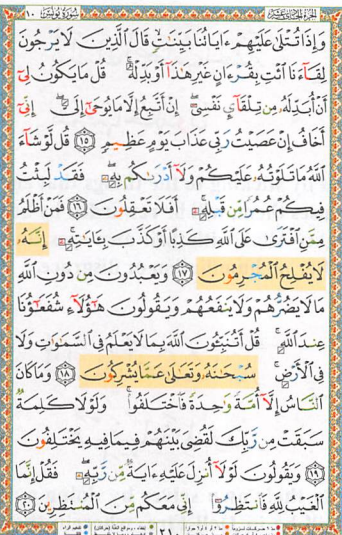 الجزء الحادي عشر ١٠ سورة يونس
وَإِذَا تُتْلَىٰ عَلَيْهِمْ ءَايَاتُنَا بَيِّنَٰتٖ قَالَ ٱلَّذِينَ لَا يَرْجُونَ
لِقَآءَنَا ٱئْتِ بِقُرْءَانٍ غَيْرِ هَٰذَآ أَوْ بَدِّلْهُ ۚ قُلْ مَا يَكُونُ لِيٓ
أَنْ أُبَدِّلَهُۥ مِن تِلْقَآيِٕ نَفْسِيٓ ۖ إِنْ أَتَّبِعُ إِلَّا مَا يُوحَىٰٓ إِلَيَّ ۖ إِنِّيٓ
أَخَافُ إِنْ عَصَيْتُ رَبِّي عَذَابَ يَوْمٍ عَظِيمٖ ١٥ قُل لَّوْ شَآءَ
ٱللَّهُ مَا تَلَوْتُهُۥ عَلَيْكُمْ وَلَآ أَدْرَىٰكُم بِهِۦ ۖ فَقَدْ لَبِثْتُ
فِيكُمْ عُمُرٗا مِّن قَبْلِهِۦٓ ۚ أَفَلَا تَعْقِلُونَ ١٦ فَمَنْ أَظْلَمُ
مِمَّنِ ٱفْتَرَىٰ عَلَى ٱللَّهِ كَذِبًا أَوْ كَذَّبَ بِـَٔايَٰتِهِۦٓ ۚ إِنَّهُۥ
لَا يُفْلِحُ ٱلْمُجْرِمُونَ ١٧ وَيَعْبُدُونَ مِن دُونِ ٱللَّهِ
مَا لَا يَضُرُّهُمْ وَلَا يَنفَعُهُمْ وَيَقُولُونَ هَٰٓؤُلَآءِ شُفَعَٰٓؤُنَا
عِندَ ٱللَّهِ ۚ قُلْ أَتُنَبِّـُٔونَ ٱللَّهَ بِمَا لَا يَعْلَمُ فِي ٱلسَّمَٰوَٰتِ وَلَا
فِي ٱلْأَرْضِ ۚ سُبْحَٰنَهُۥ وَتَعَٰلَىٰ عَمَّا يُشْرِكُونَ ١٨ وَمَا كَانَ
ٱلنَّاسُ إِلَّآ أُمَّةٗ وَٰحِدَةٗ فَٱخْتَلَفُوا۟ ۚ وَلَوْلَا كَلِمَةٞ
سَبَقَتْ مِن رَّبِّكَ لَقُضِيَ بَيْنَهُمْ فِيمَا فِيهِ يَخْتَلِفُونَ
١٩ وَيَقُولُونَ لَوْلَآ أُنزِلَ عَلَيْهِ ءَايَةٞ مِّن رَّبِّهِۦ ۖ فَقُلْ إِنَّمَا
ٱلْغَيْبُ لِلَّهِ فَٱنتَظِرُوٓا۟ إِنِّي مَعَكُم مِّنَ ٱلْمُنتَظِرِينَ ٢٠
٢١٠